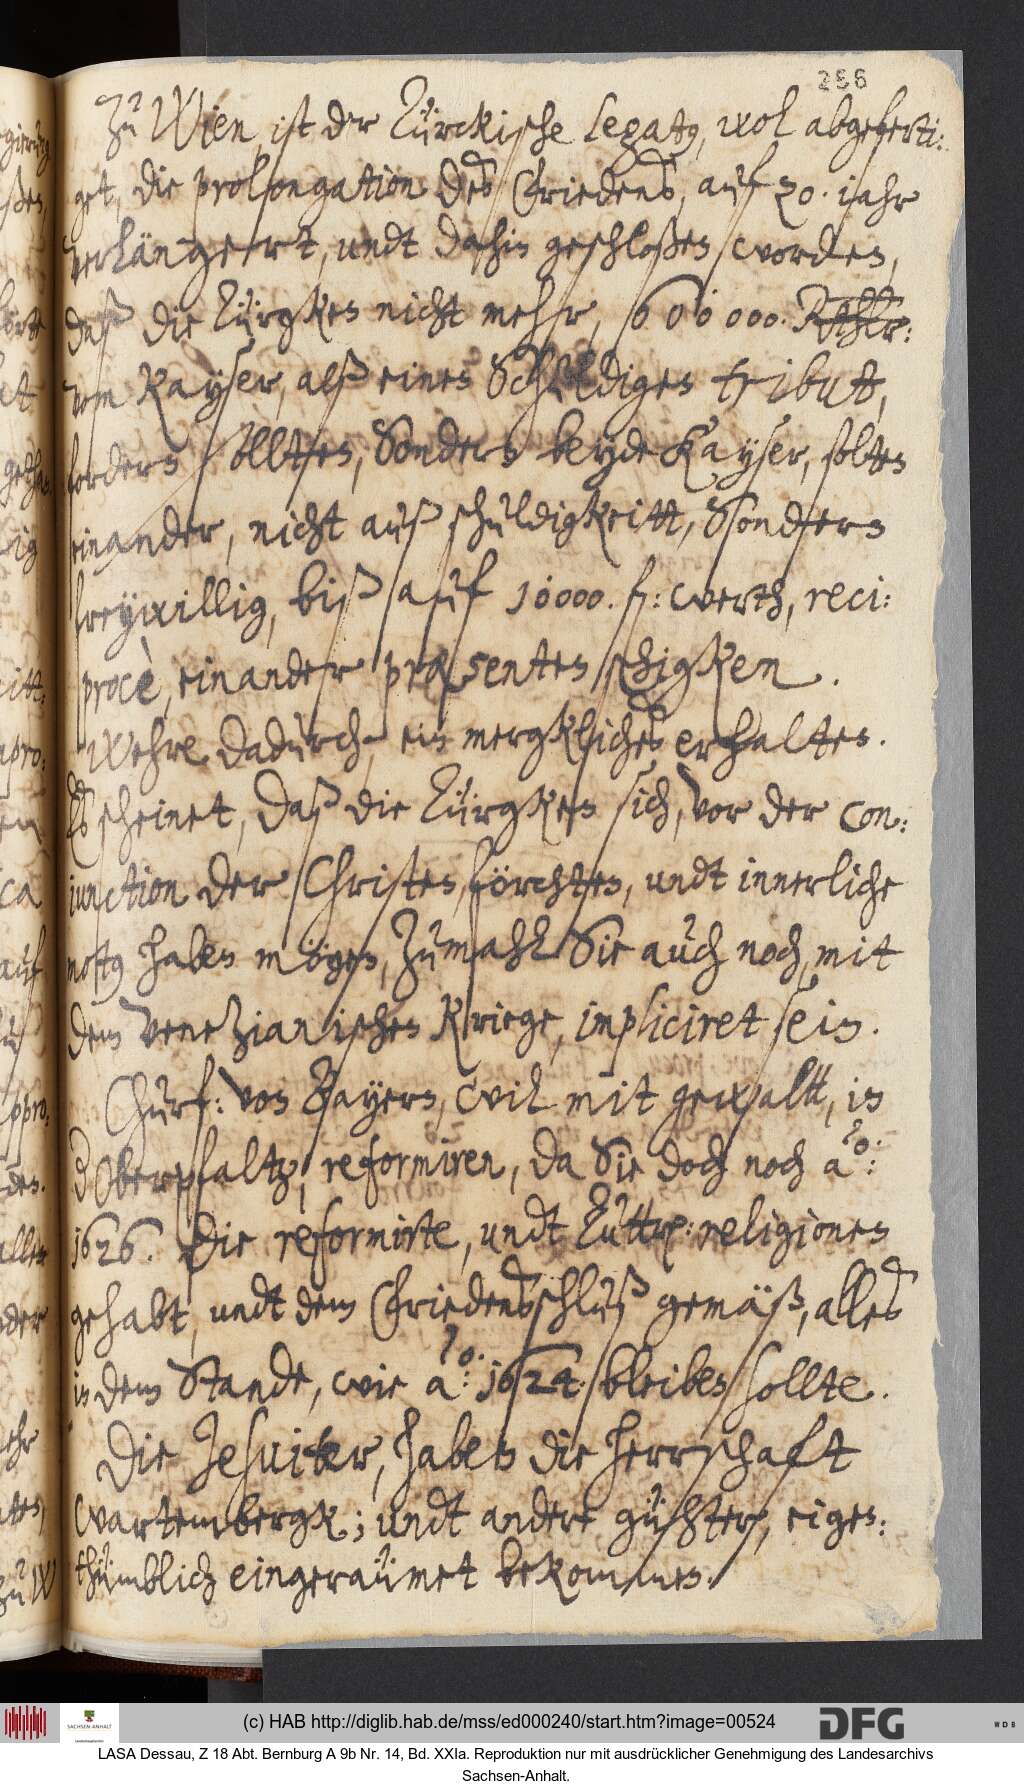 256
Zu Wien, ist der Türckische legatg, wol abgeferti:
get, die prolongation des Friedens, auf 20. iahr
verlängeert, undt dahin geschloßen worden,
daß die Türgken nicht mehr, 600000. Rthlr:
vom Kayser, alß einen Schuldigen tribut,
fordern söllten, Sondern beyde Kayser, solten
einander, nicht auß schuldigkeitt, Sondern
freywillig, biß auf 10000. fl: werth, reci:
procè, einander præsenten schigken.
Wehre dadurch, ein mergkliches erhalten.
Es scheinet, daß die Türgken sich, vor der con:
iunction der Christen, förchten, undt innerliche
mostg haben mögen, Zumahl Sie auch noch, mit
dem Venezianischen Kriege, impliciret sein.
Churf: von Bayern, wil mit gewaltt, in
d Oberpfaltz, reformiren, da Sie doch noch ao:
1626. die reformirte, undt Lutthe: religionen
gehabt, undt dem Friedensschluß gemäß, alles
in dem Stande, wie ao: 1624. bleiben sollte.
Die Jesuiter, haben die herrschaft
Wartembergk; undt andere gühter, eigen:
thümblich eingeraümet bekommen.
(c) HAB http://diglib.hab.de/mss/ed000240/start.htm?image=00524
SACHSEN-ANHALT
DFG
WDB
LASA Dessau, Z 18 Abt. Bernburg A 9b Nr. 14, Bd. XXIa. Reproduktion nur mit ausdrücklicher Genehmigung des Landesarchivs
Sachsen-Anhalt.